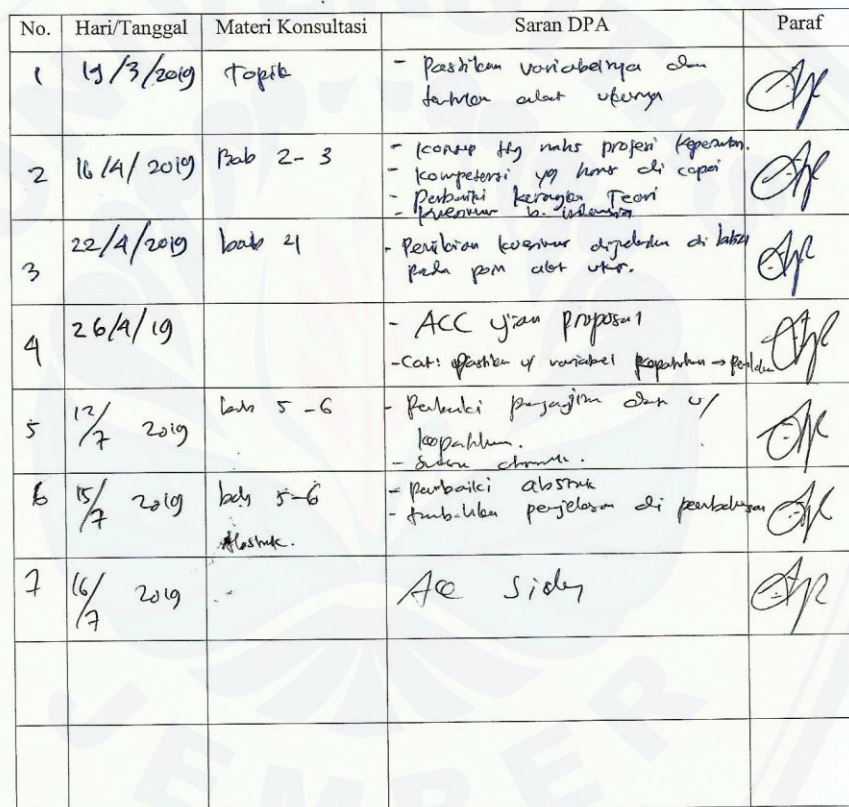 No. Hari/Tanggal Materi Konsultasi Saran DPA Paraf
1 19/3/2019 Topik - Pastikan variabelnya dan
alat ukurnya
2 16/4/2019 Bab 2-3 - Konsep ttg profesi keperawatan.
- Kompetensi yg harus di capai
- Perbaiki kerangka Teori
- Kuesioner b. indonesia
3 22/4/2019 bab 4 - Penilaian kuesioner di
pada poin alat ukur.
4 26/4/19 - ACC ujian proposal
- Cat: Pastikan u/ variabel kepatuhan →
5 12/7 2019 bab 5-6 - Perbaiki penyajian dan u/
kepatuhan.
6 15/7 2019 bab 5-6 - Perbaiki abstrak
Abstrak. - tambahkan penjelasan di pembahasan
7 16/7 2019 Acc Sidang
JEMBER